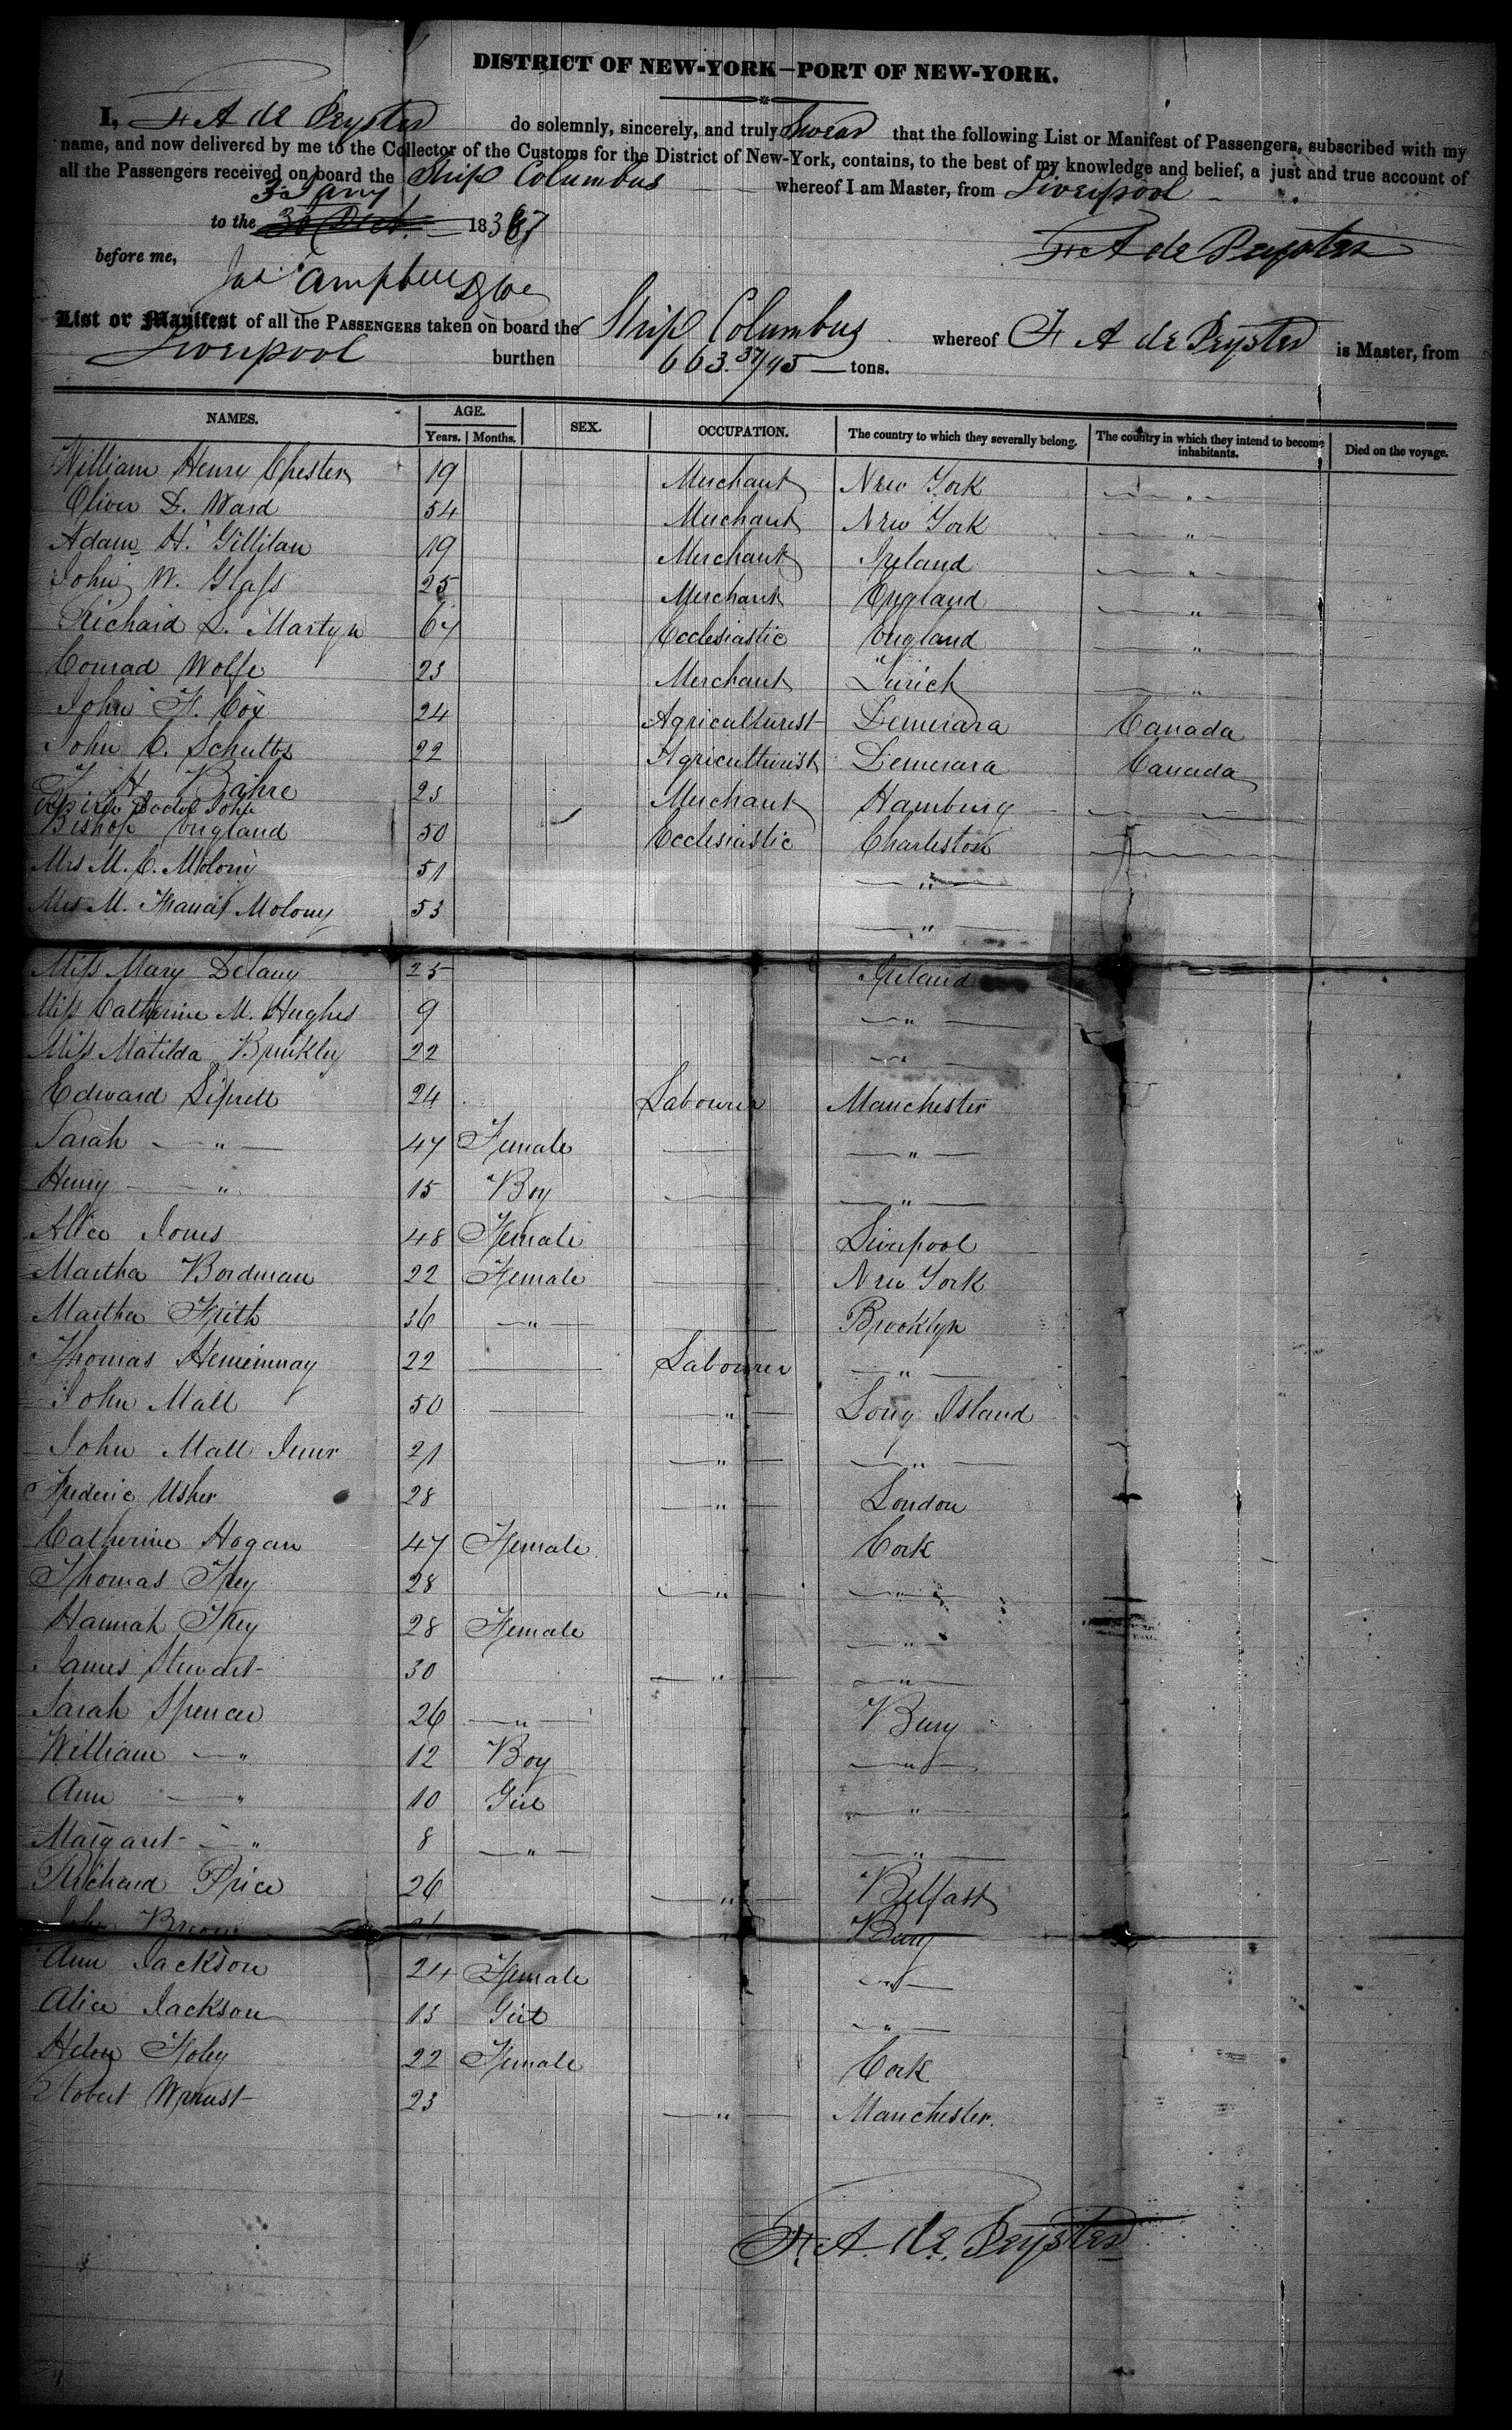 DISTRICT OF NEW-YORK—PORT OF NEW-YORK.
I, F A de Peyster do solemnly, sincerely, and truly Swear that the following List or Manifest of Passengers, subscribed with my
name, and now delivered by me to the Collector of the Customs for the District of New-York, contains, to the best of my knowledge and belief, a just and true account of
all the Passengers received on board the Ship Columbus whereof I am Master, from Liverpool
3 Jany
to the 30 Dect. 1837
F A de Peyster
before me,
List or Manifest of all the PASSENGERS taken on board the Ship Columbus whereof F A de Peyster is Master, from
Liverpool burthen 663 37/95 tons.
NAMES. AGE. Years. Months. SEX. OCCUPATION. The country to which they severally belong. The country in which they intend to become inhabitants. Died on the voyage.
William Henry Chester 19 Merchant New York "
Oliver D. Ward 54 Merchant New York "
Adam H. Gillilan 19 Merchant Ireland "
John W. Glass 25 Merchant England "
Richard L. Martyn 67 Ecclesiastic England "
Conrad Wolfe 23 Merchant Zurich "
John F. Cox 24 Agriculturist Demerara Canada
John C. Schultz 22 Agriculturist Demerara Canada
H Bahre 23 Merchant Hamburg
Doctor John
Bishop England 50 Ecclesiastic Charleston
Mrs M. C. Molony 51 "
Mrs M. Francis Molony 53 "
Miss Mary Delany 25 Ireland
Miss Catherine M. Hughes 9 "
Miss Matilda Brinkley 22 "
Edward 24 Labourer Manchester
Sarah " 47 Female "
Henry " 15 Boy "
Alice Jones 48 Female Liverpool
Martha Bordman 22 Female New York
Martha Frith 36 " Brooklyn
Thomas Hemimway 22 Labourer "
John Mall 50 " Long Island
John Mall Junr 21 " "
Frederic Usher 28 " London
Catherine Hogan 47 Female Cork
Thomas 28 " "
Hannah 28 Female "
James Stewart 30 " "
Sarah Spencer 26 " Bury
William " 12 Boy "
Ann " 10 Girl "
Margaret " 8 " "
Richard Price 26 " Belfast
John Bury
Ann Jackson 24 Female "
Alice Jackson 13 Girl "
Helen Foley 22 Female Cork
Robert 23 " Manchester.
F. A. de Peyster